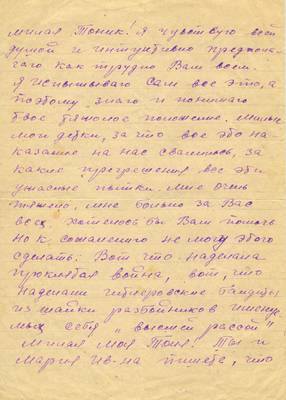 милая Тоник! Я чувствую всей
душой и интуитивно предпола-
гаю как трудно Вам всем.
Я испытываю сам все это, а
поэтому знаю и понимаю
твое тяжелое положение. Милые
мои детки, за что все это на-
казание на нас свалилось, за
какие прегрешения все эти
ужасные пытки. Мне очень
тяжело, мне больно за Вас
всех, хотелось бы Вам помочь
но к сожалению не могу этого
сделать. Вот что наделала
проклятая война, вот, что
наделали гитлеровские бандиты
из шайки разбойников имену-
мых себя „высшей рассой"
Милая моя Тоня! Ты и
Мария Ив-на пишете, что